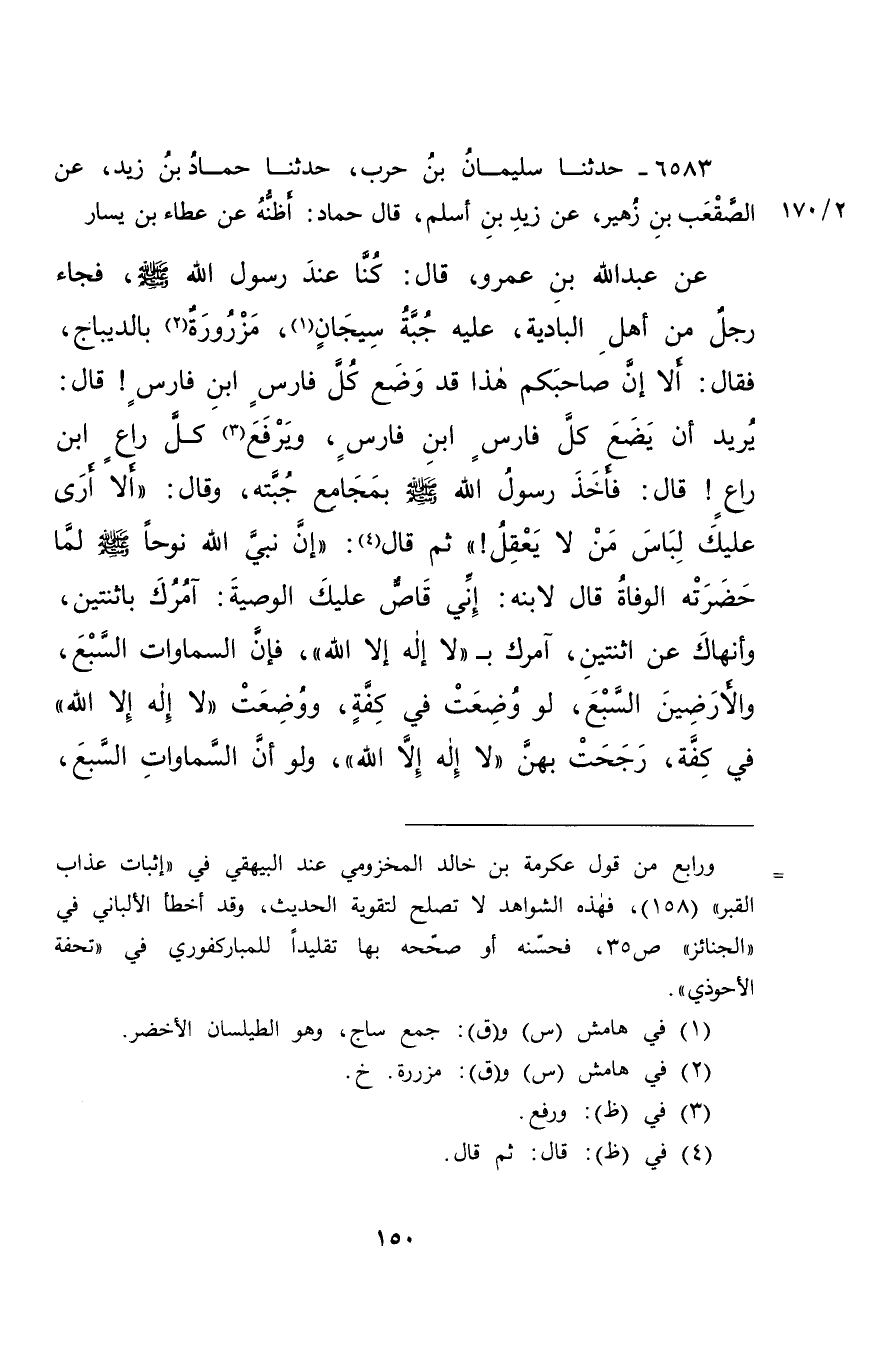 ٦٥٨٣ ـ حدثنـا سليمـانُ بنُ حرب، حدثنـا حمـادُ بنُ زيد، عن
١٧٠/٢ الصَّقْعَب بنِ زُهير، عن زيدِ بنِ أسلم، قال حماد: أَظنُّهُ عن عطاء بن يسار
عن عبدالله بنِ عمرو، قال: كُنَّا عندَ رسول الله ﷺ، فجاء
رجلٌ من أهلِ البادية، عليه جُبَّةُ سِيجَانٍ(١)، مَزْرُورَةٌ(٢) بالديباج،
فقال: أَلا إنَّ صاحبَكم هٰذا قد وَضَع كُلَّ فارسٍ ابنِ فارسٍ! قال:
يُريد أن يَضَعَ كلَّ فارسٍ ابنِ فارسٍ، ويَرْفَعَ(٣) كـلَّ راعٍ ابن
راعٍ! قال: فأَخَذَ رسولُ الله ﷺ بمَجَامِع جُبَّته، وقال: «أَلا أَرَى
عليكَ لِبَاسَ مَنْ لا يَعْقِلُ!» ثم قال(٤): «إنَّ نبيَّ الله نوحاً ﷺ لمَّا
حَضَرَتْه الوفاةُ قال لابنه: إنِّي قَاصٌّ عليكَ الوصيةَ: آمُرُكَ باثنتين،
وأنهاكَ عن اثنتينِ، آمرك بـ «لا إلٰه إلا الله»، فإنَّ السماوات السَّبْعَ،
والأَرَضِينَ السَّبْعَ، لو وُضِعَتْ في كِفَّةٍ، ووُضِعَتْ «لا إِلٰه إلا الله»
في كِفَّة، رَجَحَتْ بهنَّ «لا إِلٰه إِلَّا الله»، ولو أنَّ السَّماواتِ السَّبعَ،
= ورابع من قول عكرمة بن خالد المخزومي عند البيهقي في «إثبات عذاب
القبر» (١٥٨)، فهٰذه الشواهد لا تصلح لتقوية الحديث، وقد أخطأ الألباني في
«الجنائز» ص٣٥، فحسّنه أو صحّحه بها تقليداً للمباركفوري في «تحفة
الأحوذي».
(١) في هامش (س) و(ق): جمع ساج، وهو الطيلسان الأخضر.
(٢) في هامش (س) و(ق): مزررة. خ.
(٣) في (ظ): ورفع.
(٤) في (ظ): قال: ثم قال.
١٥٠